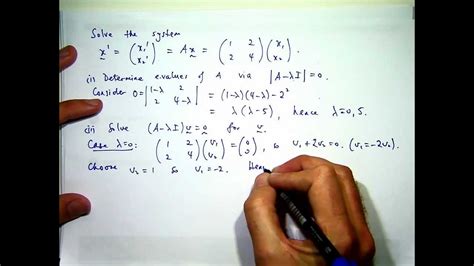 Solve the system
x' = (x₁' x₂') = Ax = (1 2 2 4)(x₁ x₂)
(i) Determine e.values of A via |A-λI|=0.
Consider 0 = |1-λ 2 2 4-λ| = (1-λ)(4-λ) - 2²
= λ(λ-5), hence λ=0,5.
(ii) Solve (A-λI)v = 0 for v.
Case λ=0: (1 2 2 4)(v₁ v₂) = (0 0), so v₁+2v₂=0. (v₁=-2v₂)
Choose v₂=1 so v₁=-2. Hen